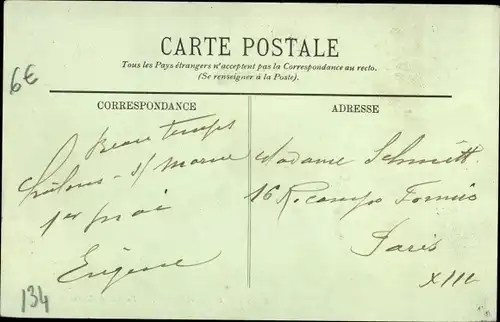 6€
CARTE POSTALE
Tous les Pays étrangers n'acceptent pas la Correspondance au recto.
(Se renseigner à la Poste).
CORRESPONDANCE
Beau temps
Châlons - s/ Marne
1er mai
Eugène
ADRESSE
Madame Schmitt
16 R. campo Formio
Paris
XIII
134